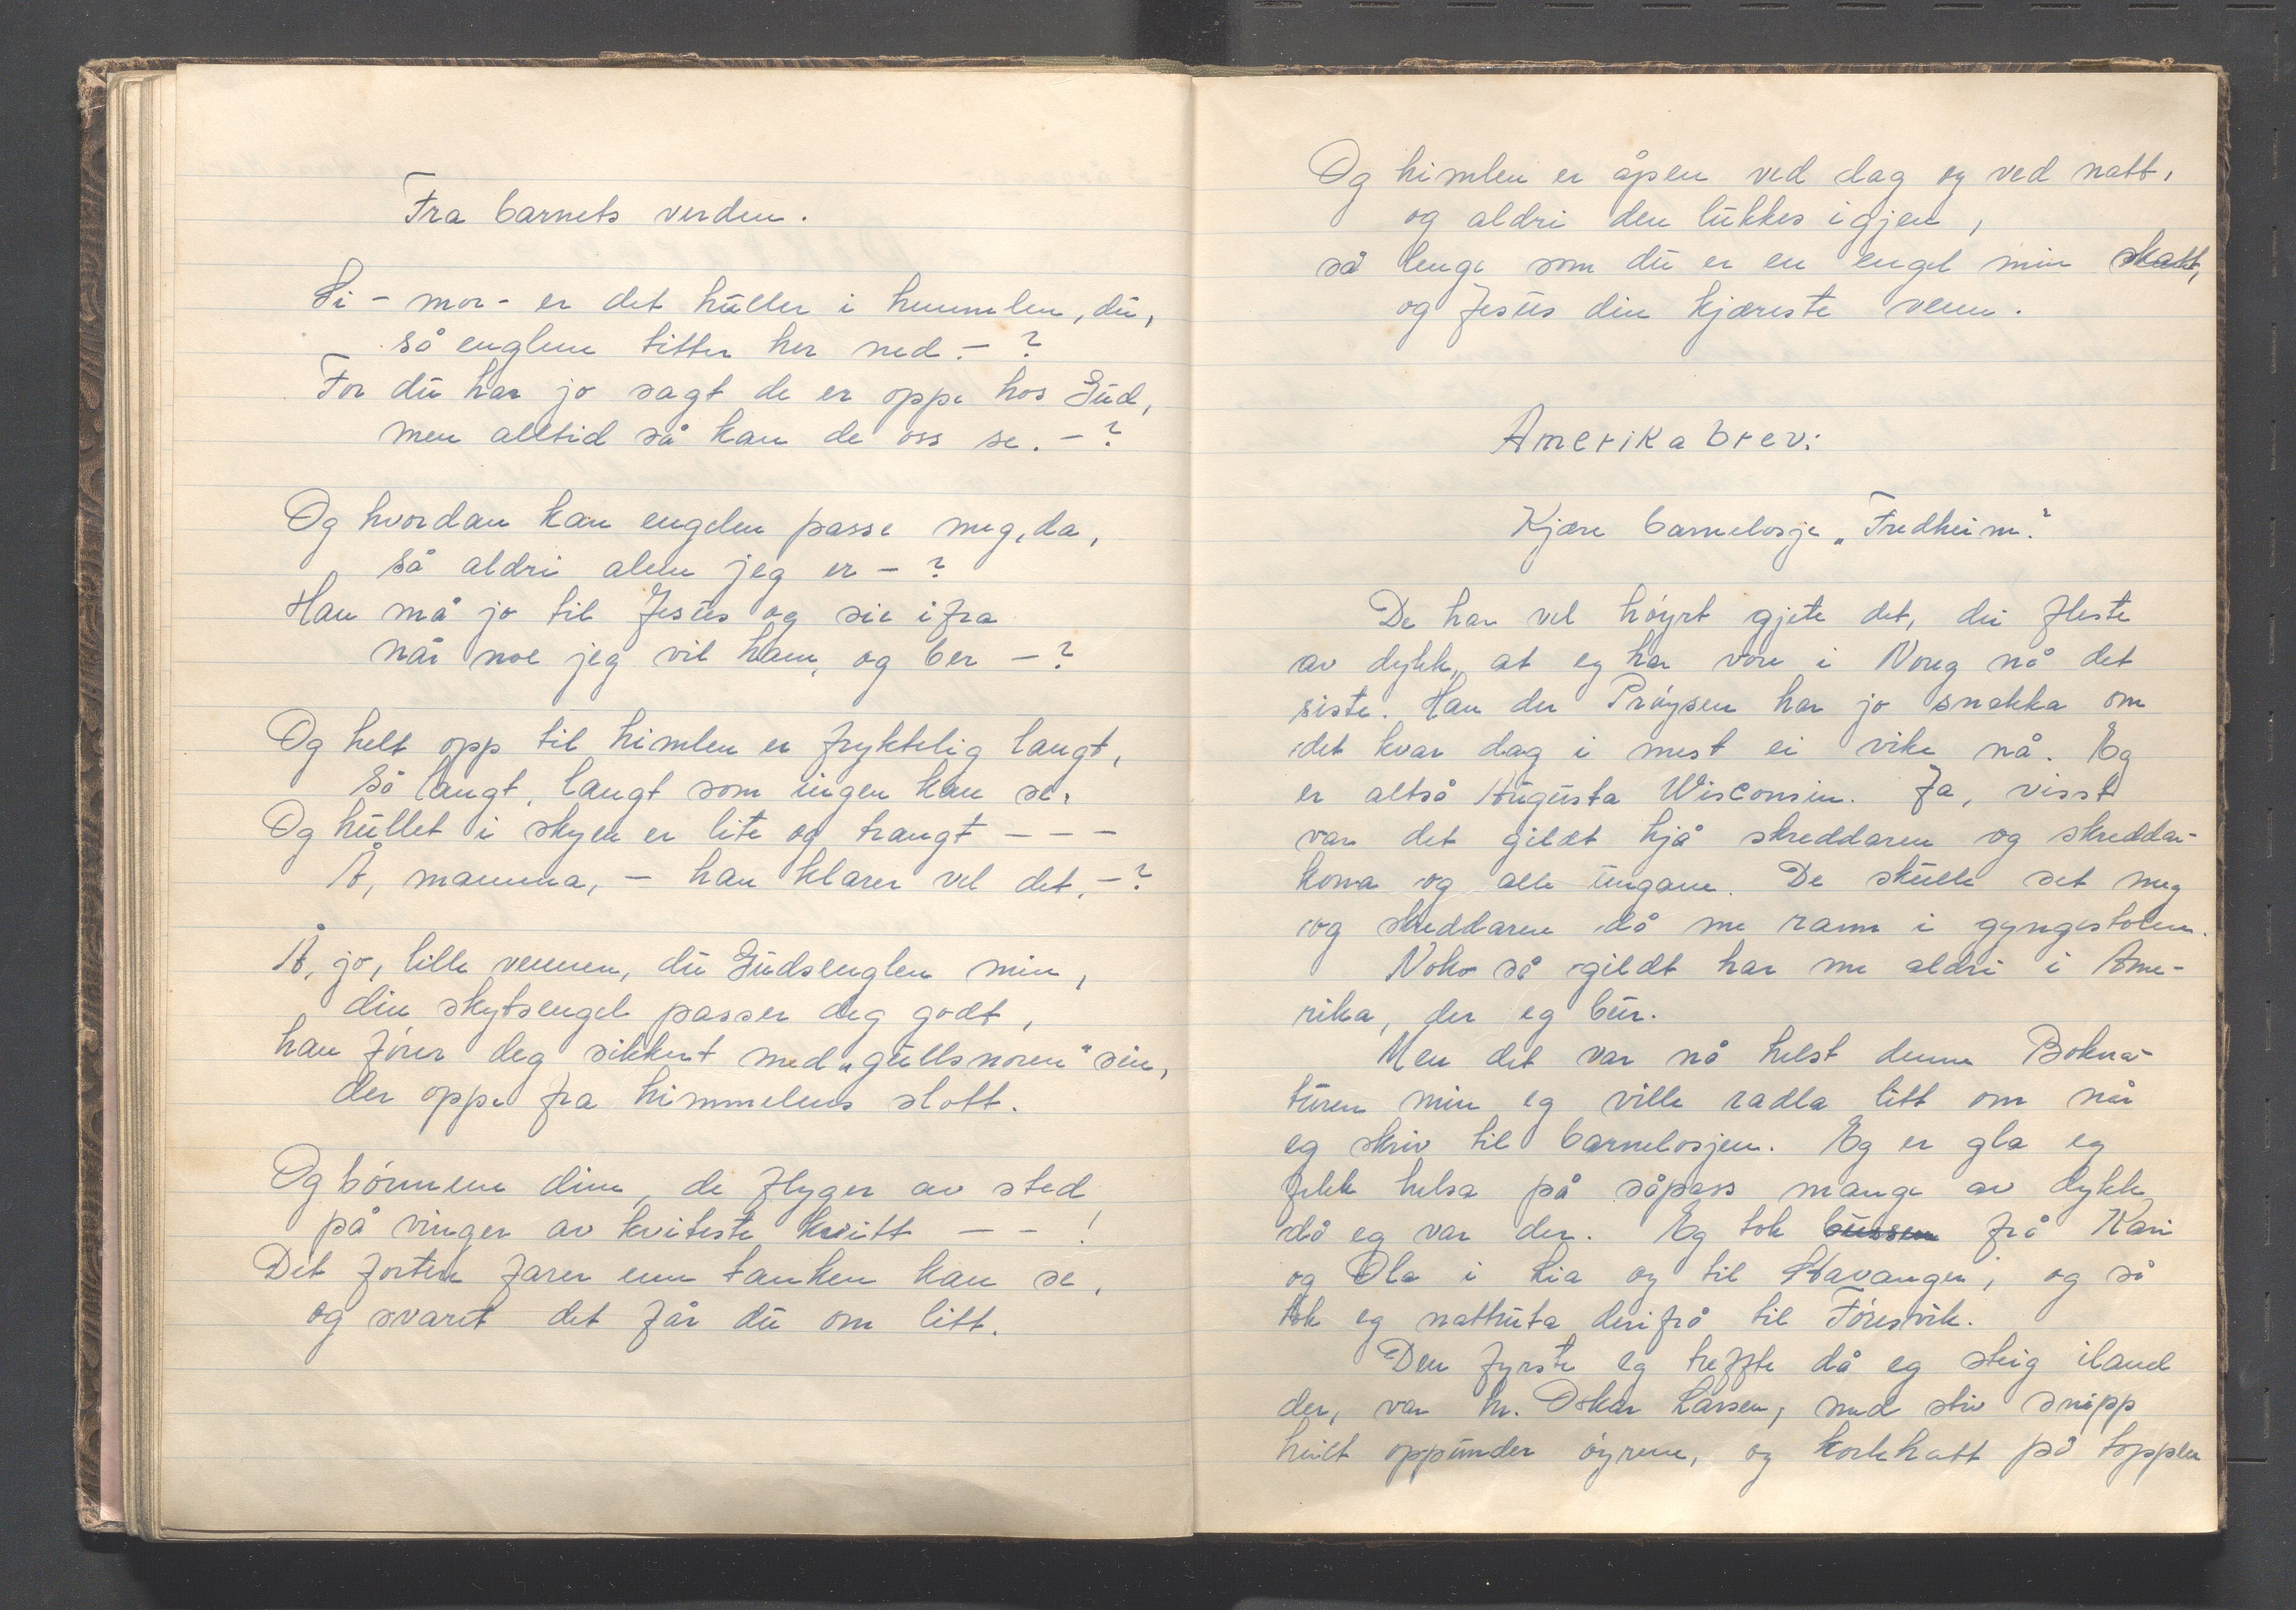 Fra barnets verden.
Si - mor - er det huller i himmlen, du,
så englene titter her ned. - ?
For du har jo sagt de er oppe hos Gud,
men alltid så kan de oss se. - ?
Og hvordan kan engelen passe meg, da,
så aldri alene jeg er - ?
Han må jo til Jesus og sie ifra
når noe jeg vil ham, og ber - ?
Og helt opp til himlen er fryktelig langt,
så langt, langt som ingen kan se.
Og hullet i skyen er lite og trangt - - -
Å, mamma, - han klarer vel det, - ?
Å, jo, lille vennen, du Gudsenglen min,
din skytsengel passer deg godt,
han fører deg sikkert med „gullsnoren" sin,
der oppe fra himmelens slott.
Og bønnene dine, de flyger av sted
på vinger av kviteste kvitt - - !
Det fortere farer enn tanken kan se,
og svaret det får du om litt.
Og himlen er åpen ved dag og ved natt,
og aldri den lukkes igjen,
så lenge som du er en engel min skatt,
og Jesus din kjæreste venn.
Amerikabrev:
Kjære barnelosje „Fredheim".
De har vel høyrt gjete det, dei fleste
av dykk, at eg har vore i Noreg nå det
siste. Han der Prøysen har jo snakka om
det kvar dag i mest ei vike nå. Eg
er altså Augusta Wisconsin. Ja, visst
var det gildt hjå skreddaren og skreddar-
kona og alle ungane. De skulle set meg
og skreddaren då me rann i gyngestolen.
Noko så gildt har me aldri i Ame-
rika, der eg bur.
Men det var nå helst denne Bokna-
turen min eg ville radla litt om når
eg skriv til barnelosjen. Eg er gla eg
fekk helsa på såpass mange av dykk
då eg var der. Eg tok bussen frå Kari
og Ola i Lia og til Stavanger, og så
tok eg nattruta derifrå til Føresvik.
Den fyrste eg treffte då eg steig iland
der, var hr. Oskar Larsen, med stiv snipp
heilt oppunder øyrene, og korkhatt på toppen